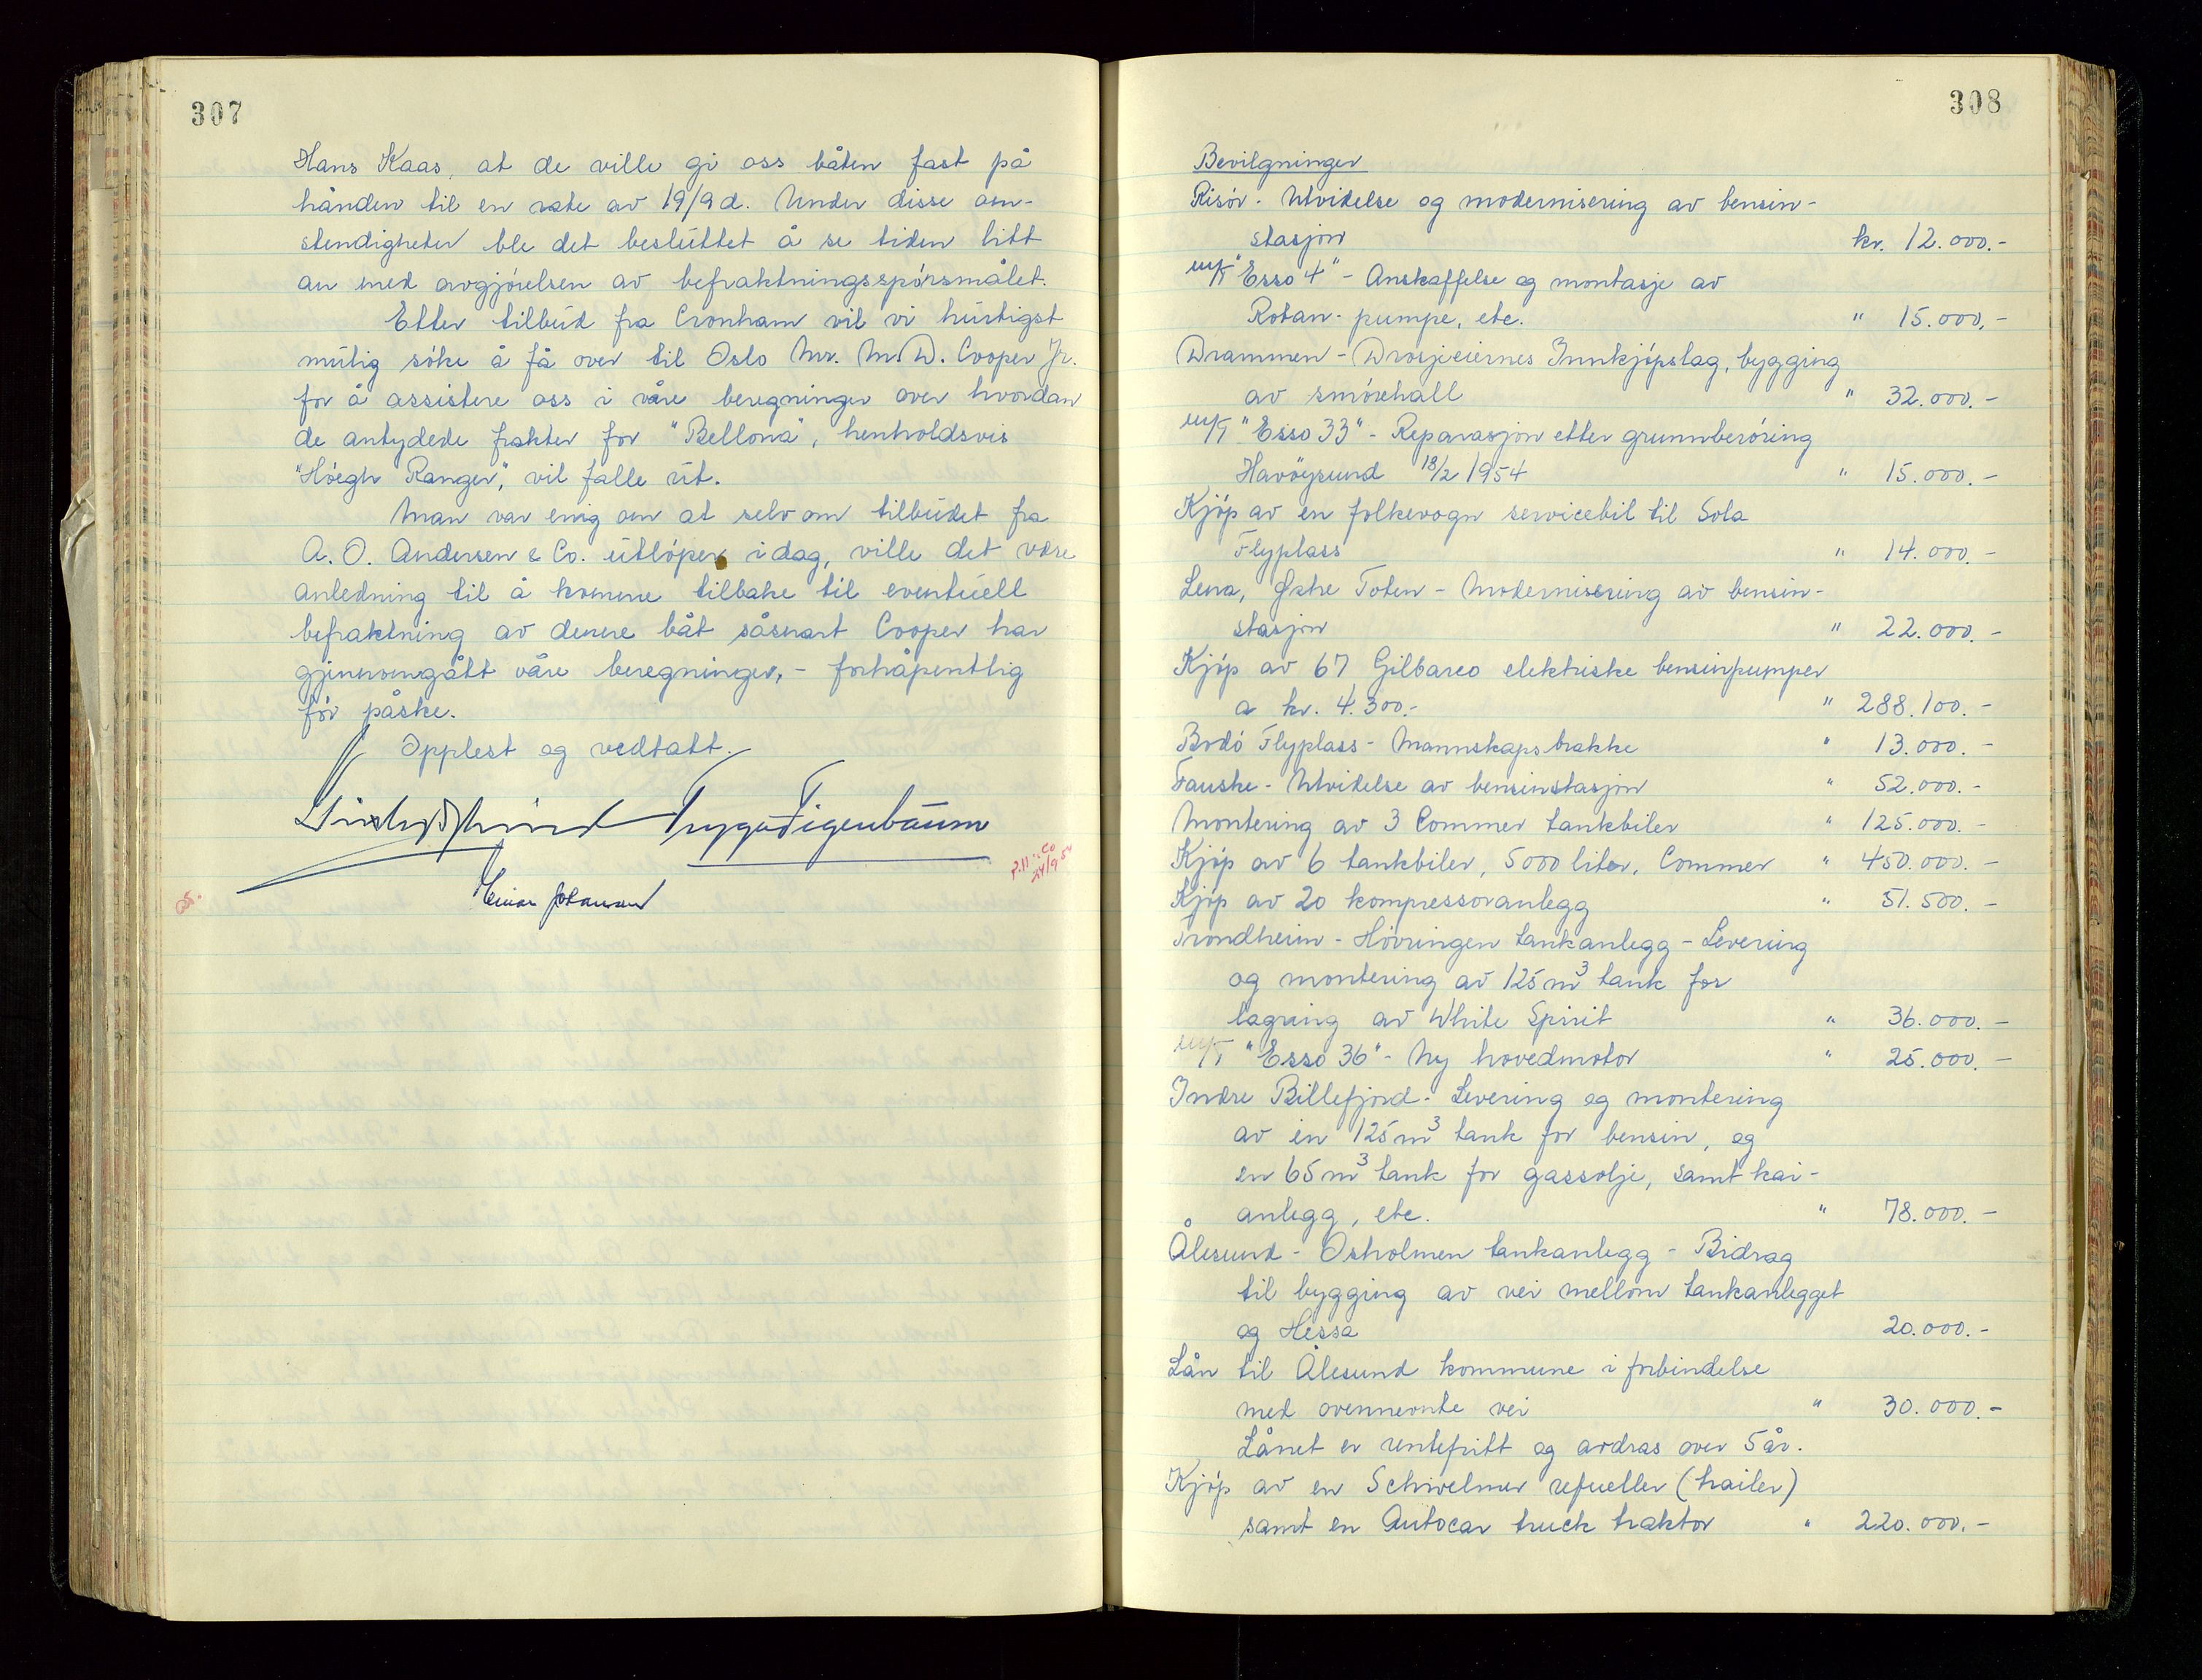 307
Hans Kaas, at de ville gi oss båten fast på
hånden til en rate av 19/9d. Under disse om-
stendigheter ble det besluttet å se tiden litt
an med avgjørelsen av befraktningsspørsmålet.
Etter tilbud fra Cronham vil vi hurtigst
mulig søke å få over til Oslo Mr. M.D. Cooper Jr.
for å assistere oss i våre beregninger over hvordan
de antydede frakter for "Bellona", henholdsvis
"Høegh Ranger", vil falle ut.
Man var enig om at selv om tilbudet fra
A. O. Andersen & Co. utløper idag, ville det være
anledning til å komme tilbake til eventuell
befraktning av denne båt såsnart Cooper har
gjennomgått våre beregninger, - forhåpentlig
før påske.
Opplest og vedtatt.
Trygve Figenbaum
Einar Johansen
308
Bevilgninger
Risør - Utvidelse og modernisering av bensin-
stasjon kr. 12.000.-
m/T "Esso 4" - Anskaffelse og montasje av
Rotan-pumpe, etc. " 15.000,-
Drammen - Drosjeeiernes Innkjøpslag, bygging
av smørehall " 32.000.-
m/T "Esso 33" - Reparasjon etter grunnberøring
Havøysund 18/2 1954 " 15.000.-
Kjøp av en folkevogn servicebil til Sola
Flyplass " 14.000.-
Lena, Østre Toten - Modernisering av bensin-
stasjon " 22.000.-
Kjøp av 67 Gilbarco elektriske bensinpumper
a kr. 4.300.- " 288.100.-
Bodø Flyplass - Mannskapsbrakke " 13.000.-
Fauske - Utvidelse av bensinstasjon " 52.000.-
Montering av 3 Commer tankbiler " 125.000.-
Kjøp av 6 tankbiler, 5000 liter, Commer " 450.000.-
Kjøp av 20 kompressoranlegg " 51.500.-
Trondheim - Høvringen tankanlegg - Levering
og montering av 125 m³ tank for
lagring av White Spirit " 36.000.-
m/T "Esso 36" - Ny hovedmotor " 25.000.-
Indre Billefjord - Levering og montering
av en 125 m³ tank for bensin, og
en 65 m³ tank for gassolje, samt kai-
anlegg, etc. " 78.000.-
Ålesund - Osholmen tankanlegg - Bidrag
til bygging av vei mellom tankanlegget
og Hessa 20.000.-
Lån til Ålesund kommune i forbindelse
med ovennevnte vei " 30.000.-
Lånet er rentefritt og avdras over 5 år.
Kjøp av en Schwelmer refueller (trailer)
samt en Autocar truck traktor " 220.000.-